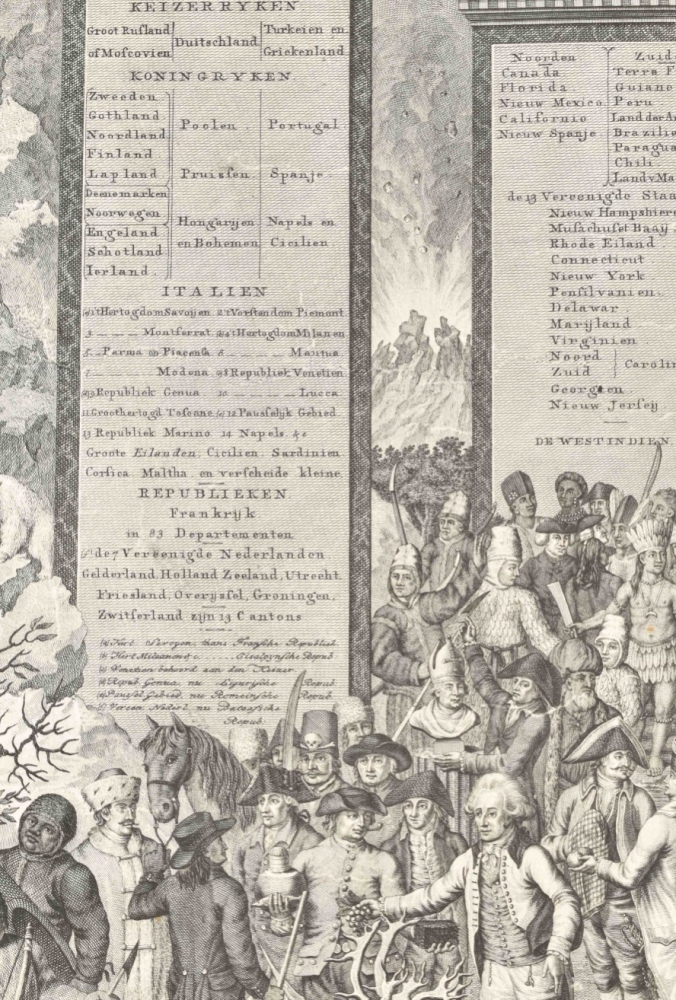 KEIZERRYKEN.
Groot Rusland of Moscovien
Duitschland
Turkeien en Griekenland
KONINGRYKEN.
Zweeden
Gothland
Noordland
Finland
Lapland
Deenemarken
Noorwegen
Engeland
Schotland
Ierland
Poolen
Pruissen
Hongaryen en Bohemen
Portugal
Spanje
Napels en Cicilien
ITALIEN
't Hertogdom Savoijen 2 't Vorstendom Piemont
3 — — — Montferrat 't Hertogdom Milanen
5 — Parma en Piacensa 6 — — — Mantua
7 — — — Modena 8 Republiek Venetien
9 Republiek Genua 10 — — — Lucca
11 Groothertogd Toscane 12 Pausselyk Gebied
13 Republiek Marino 14 Napels &c
Groote Eilanden, Cicilien, Sardinien
Corsica Maltha en verscheide kleine
REPUBLIEKEN.
Frankrijk
in 83 Departementen
de 7 Vereenigde Nederlanden
Gelderland, Holland Zeeland, Utrecht
Friesland, Overijssel, Groningen,
Zwitserland zijn 13 Cantons
Hert. Savoyen thans Fransche Republiek
Hert Milaanent . . . . . . Cisalpynsche Repub
Venetien behoord aan den Keizer
Repub Genua nu Ligurische Repub
Pausel Gebied nu Romeinsche Repub
Vereen Nederl nu Bataafsche
Repub
Noorden
Canada
Florida
Nieuw Mexico
Californie
Nieuw Spanje
Zuid
Terra F
Guiane
Peru
Land der Am
Brazilie
Paragua
Chili
Land v Ma
de 13 Vereenigde Staa
Nieuw Hampshiere
Musachuset Baaij
Rhode Eiland
Connecticut
Nieuw York
Pensilvanien
Delawar
Marijland
Virginien
Noord
Zuid
Carolin
Georgien
Nieuw Jersey
DE WESTINDIEN.